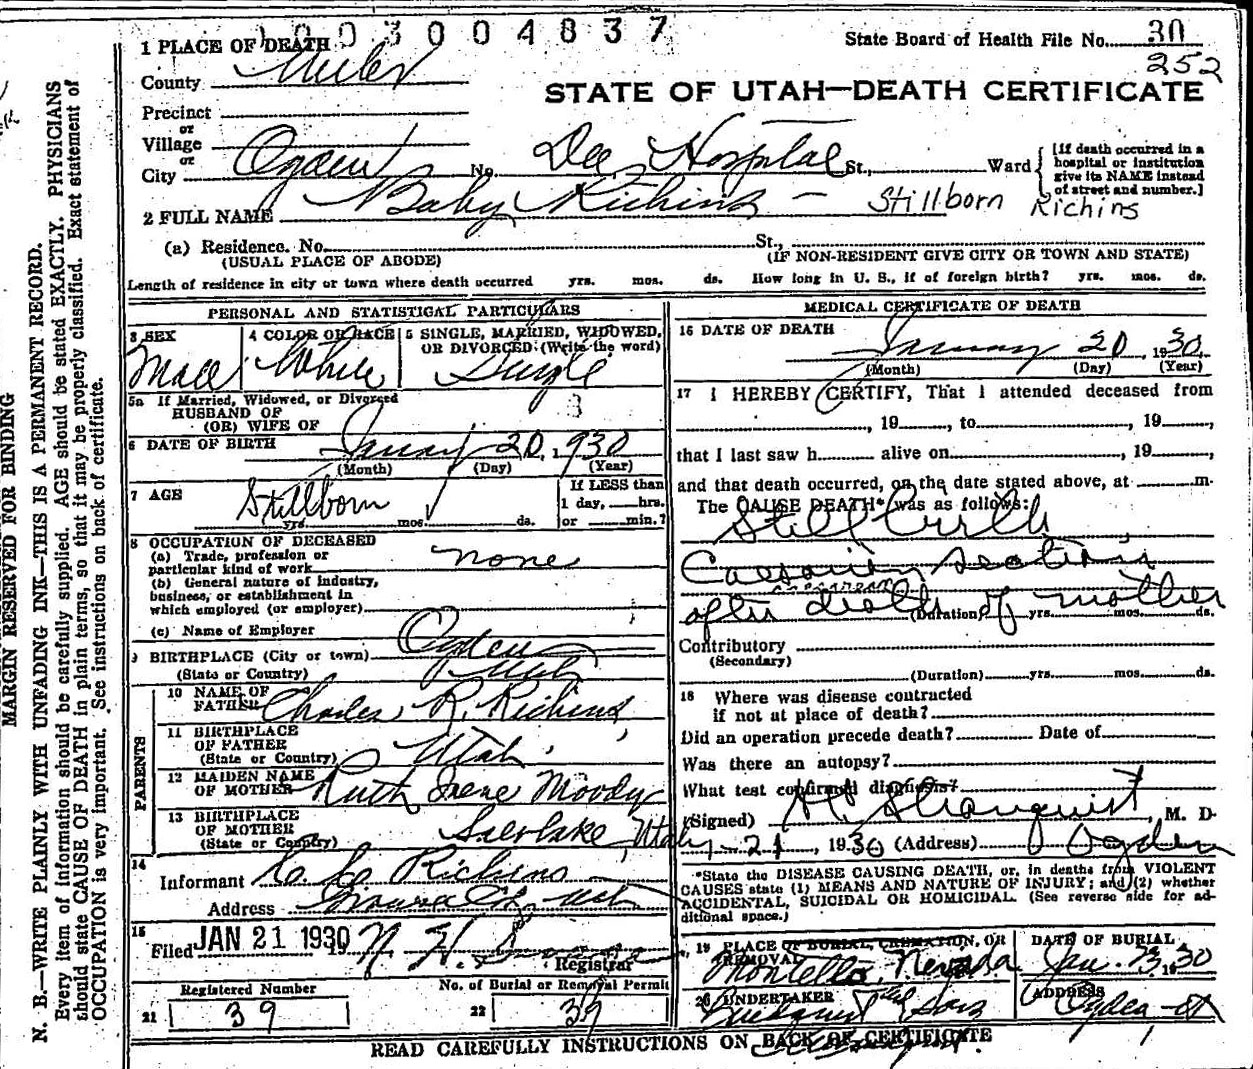 1003004837
1 PLACE OF DEATH
State Board of Health File No. 30
252
County Weber
STATE OF UTAH—DEATH CERTIFICATE
Precinct
or
Village
or
City Ogden No. Dee Hospital St., Ward
[If death occurred in a hospital or institution give its NAME instead of street and number.]
2 FULL NAME Baby Richins - Stillborn Richins
(a) Residence. No. St.,
(USUAL PLACE OF ABODE) (IF NON-RESIDENT GIVE CITY OR TOWN AND STATE)
Length of residence in city or town where death occurred yrs. mos. ds. How long in U. S., if of foreign birth? yrs. mos. ds.
PERSONAL AND STATISTICAL PARTICULARS
3 SEX
Male
4 COLOR OR RACE
White
5 SINGLE, MARRIED, WIDOWED, OR DIVORCED (Write the word)
Single
5a If Married, Widowed, or Divorced
HUSBAND OF
(OR) WIFE OF
6 DATE OF BIRTH January 20, 1930
(Month) (Day) (Year)
7 AGE
Stillborn
yrs. mos. ds.
If LESS than
1 day, hrs.
or min.?
8 OCCUPATION OF DECEASED
(a) Trade, profession or
particular kind of work none
(b) General nature of industry,
business, or establishment in
which employed (or employer)
(c) Name of Employer
9 BIRTHPLACE (City or town) Ogden
(State or Country) Utah
PARENTS
10 NAME OF
FATHER Charles R. Richins
11 BIRTHPLACE
OF FATHER
(State or Country) Utah
12 MAIDEN NAME
OF MOTHER Ruth Irene Moody
13 BIRTHPLACE
OF MOTHER
(State or Country) Salt Lake, Utah
14
Informant Richins
Address Utah
15
Filed JAN 21 1930 19 N. H.
Registrar
Registered Number
21 39
No. of Burial or Removal Permit
22 39
MEDICAL CERTIFICATE OF DEATH
16 DATE OF DEATH
January 20, 1930
(Month) (Day) (Year)
17 I HEREBY CERTIFY, That I attended deceased from
, 19 , to , 19 ,
that I last saw h alive on , 19 ,
and that death occurred, on the date stated above, at m.
The CAUSE DEATH* was as follows:
Still birth
Caesarian section
Caesarean
after death of mother
(Duration) yrs. mos. ds.
Contributory
(Secondary)
(Duration) yrs. mos. ds.
18 Where was disease contracted
if not at place of death?
Did an operation precede death? Date of
Was there an autopsy?
What test confirmed diagnosis?
(Signed) Stranquist, M. D.
21, 1930 (Address) Ogden
*State the DISEASE CAUSING DEATH, or, in deaths from VIOLENT
CAUSES state (1) MEANS AND NATURE OF INJURY; and (2) whether
ACCIDENTAL, SUICIDAL OR HOMICIDAL. (See reverse side for ad-
ditional space.)
19 PLACE OF BURIAL, CREMATION, OR
REMOVAL
Montello, Nevada
DATE OF BURIAL
Jan. 23, 1930
20 UNDERTAKER
Sons
ADDRESS
Ogden
READ CAREFULLY INSTRUCTIONS ON BACK OF CERTIFICATE
MARGIN RESERVED FOR BINDING
N. B.—WRITE PLAINLY WITH UNFADING INK—THIS IS A PERMANENT RECORD.
Every item of information should be carefully supplied. AGE should be stated EXACTLY. PHYSICIANS
should state CAUSE OF DEATH in plain terms, so that it may be properly classified. Exact statement of
OCCUPATION is very important. See instructions on back of certificate.